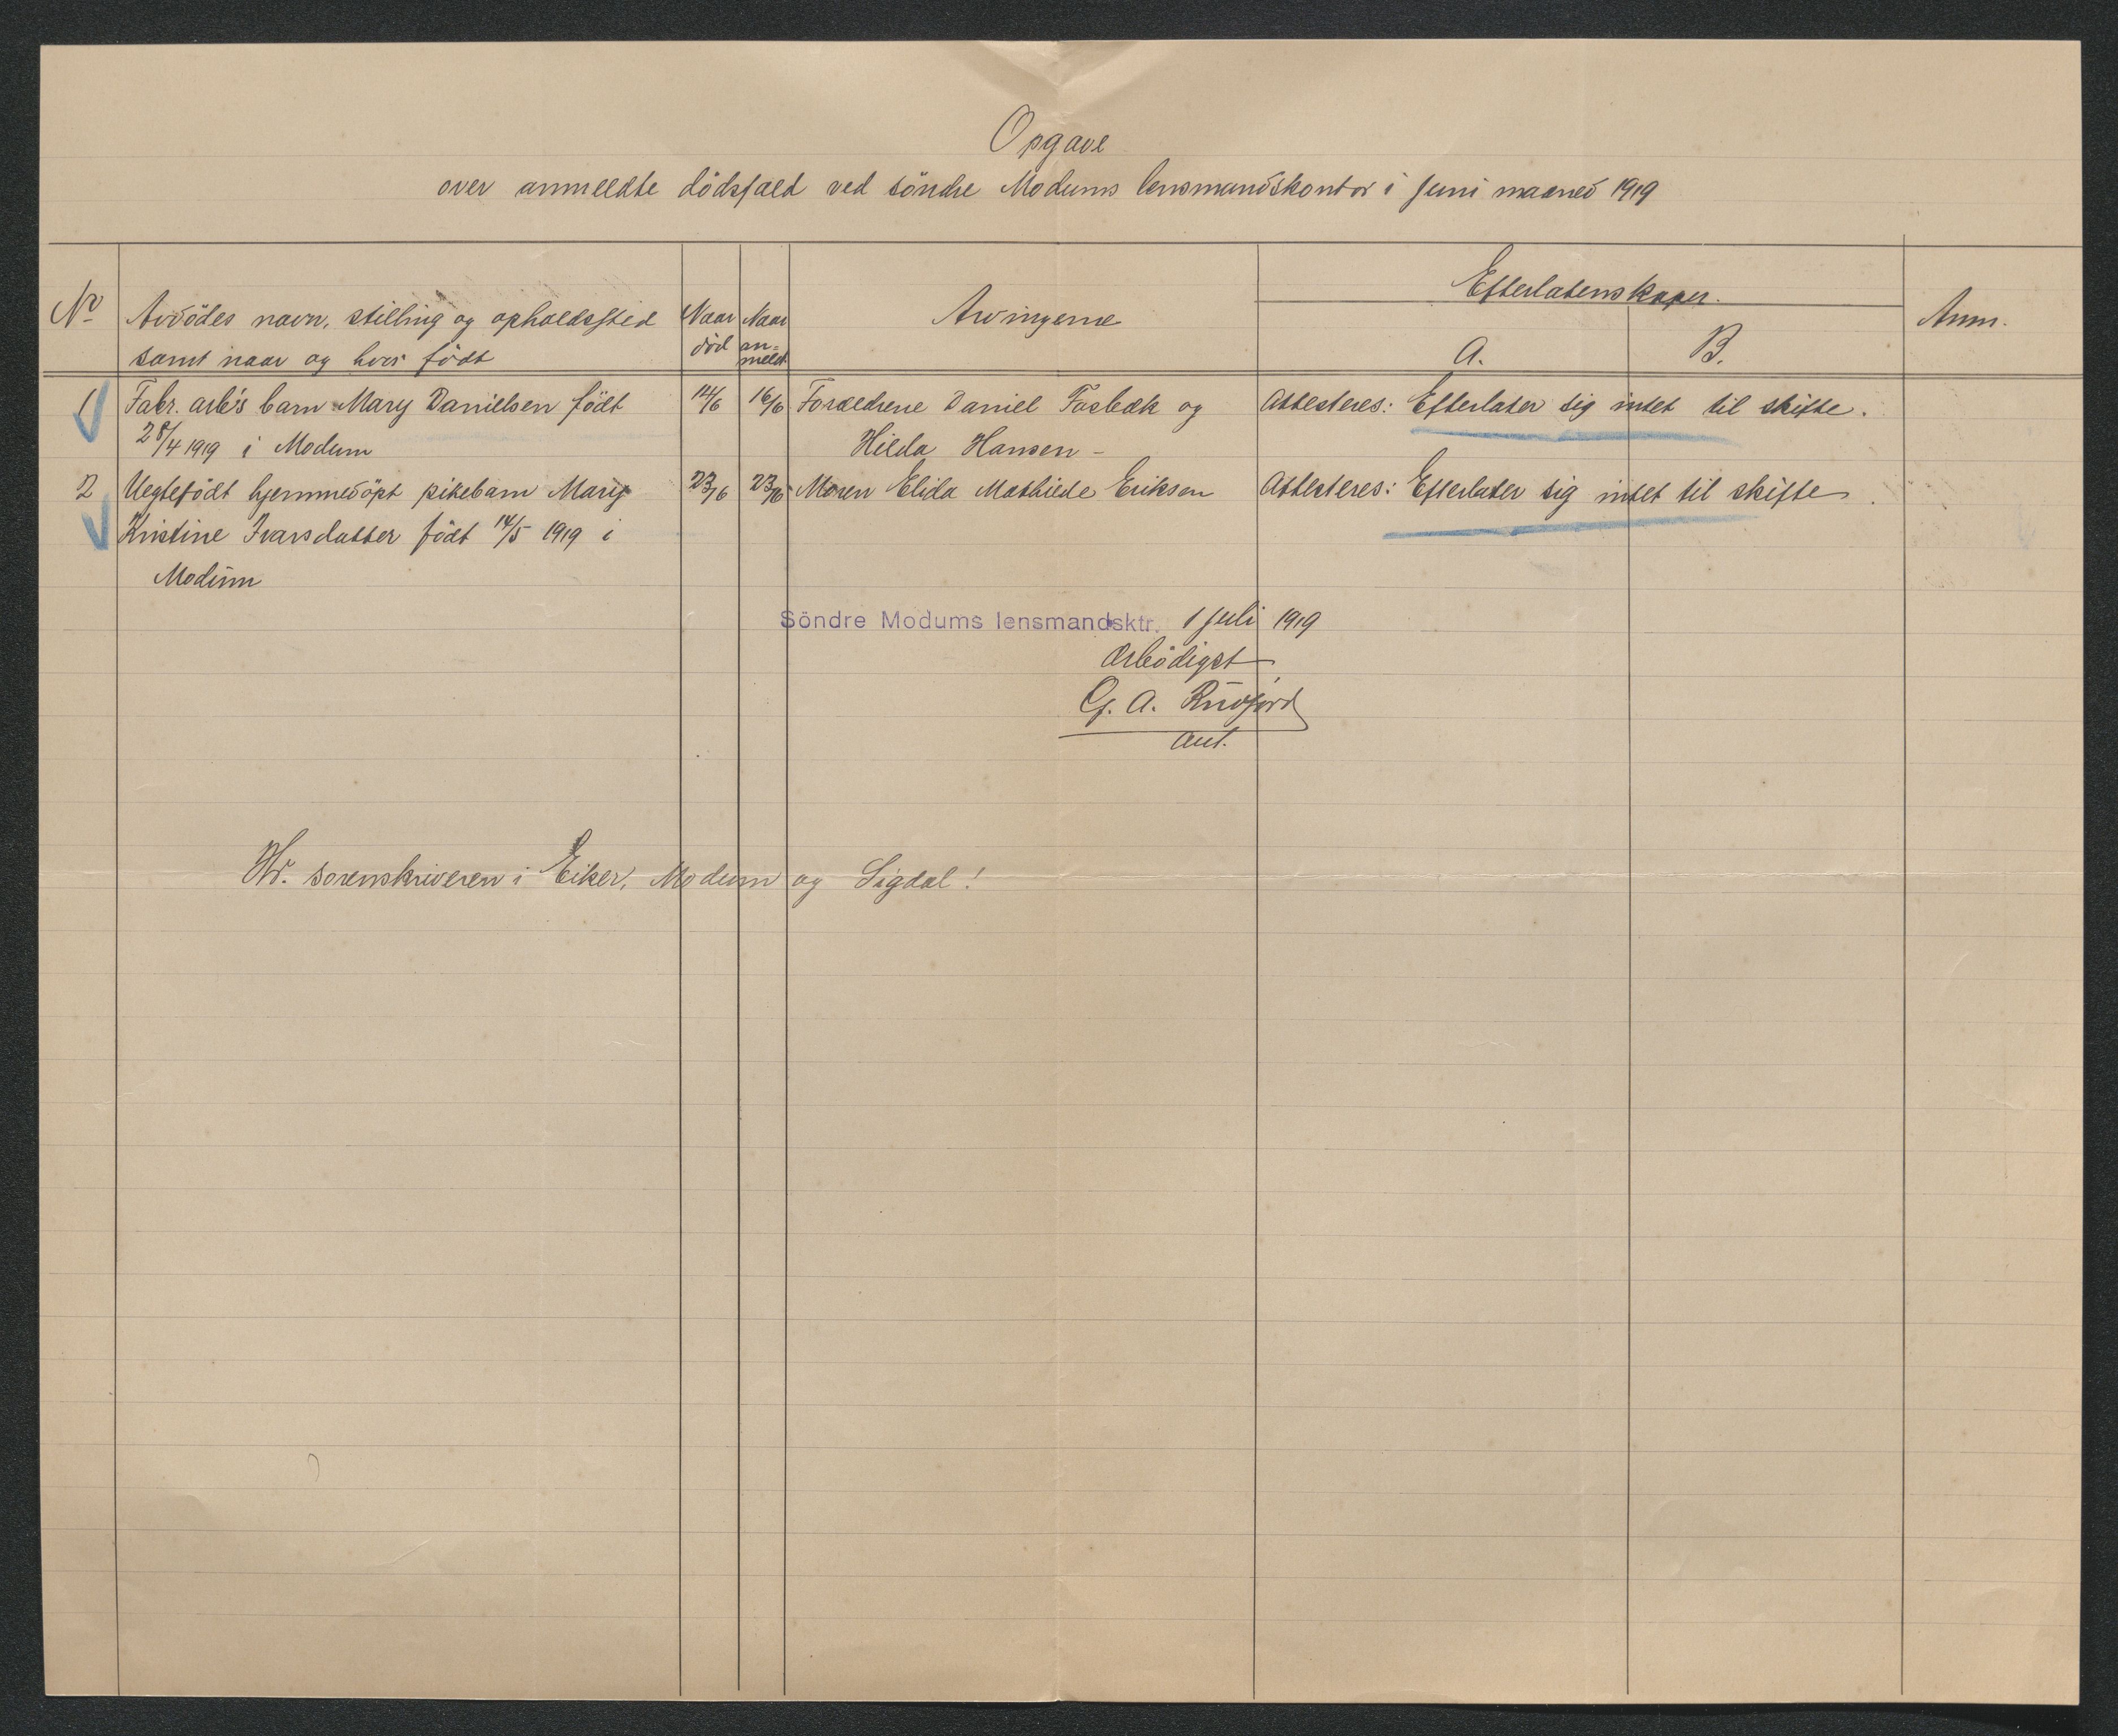 Opgave
over anmeldte dödsfald ved söndre Modums lensmandskontor i Juni maaned 1919
No
Avdödes navn, stilling og opholdssted
samt naar og hvor födt
Naar
död
Naar
an-
meldt
Arvingerne
Efterlatenskaper.
A.
B.
Anm.
1
Fabr. arb's barn Mary Daniellsen födt
28/4 1919 i Modum
14/6
16/6
Forældrene Daniel Fosbæk og
Hilda Hansen -
Attesteres: Efterlater sig intet til skifte.
2
Uegtefödt hjemmedöpt pikebarn Mary
Kristine Ivarsdatter födt 14/5 1919 i
Modum
23/6
23/6
Moren Elida Mathilde Eriksen
Attesteres: Efterlater sig intet til skifte.
Söndre Modums lensmandsktr. 1 juli 1919
Ærbödigst
G. A. Rudfjord
aut.
Hr. sorenskriveren i Eiker, Modum og Sigdal!